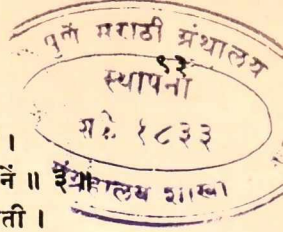 पुणें मराठी ग्रंथालय
९३
स्थापना
शके १८३३
।
नें ॥ ३ ॥
ग्रंथालय शाखा
ती ।